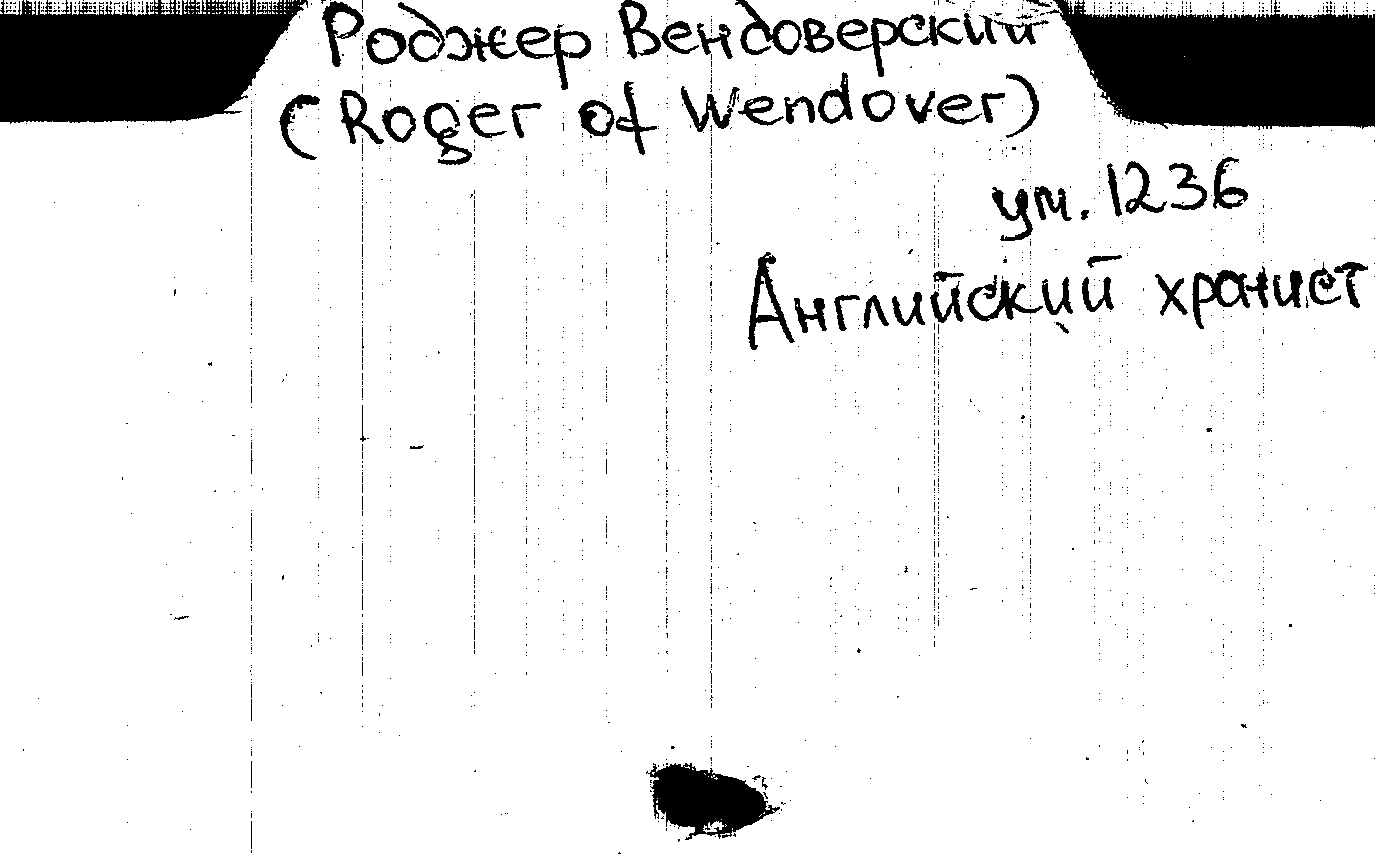 Роджер Вендоверский
(Roger of Wendover)
ум. 1236
Английский хронист